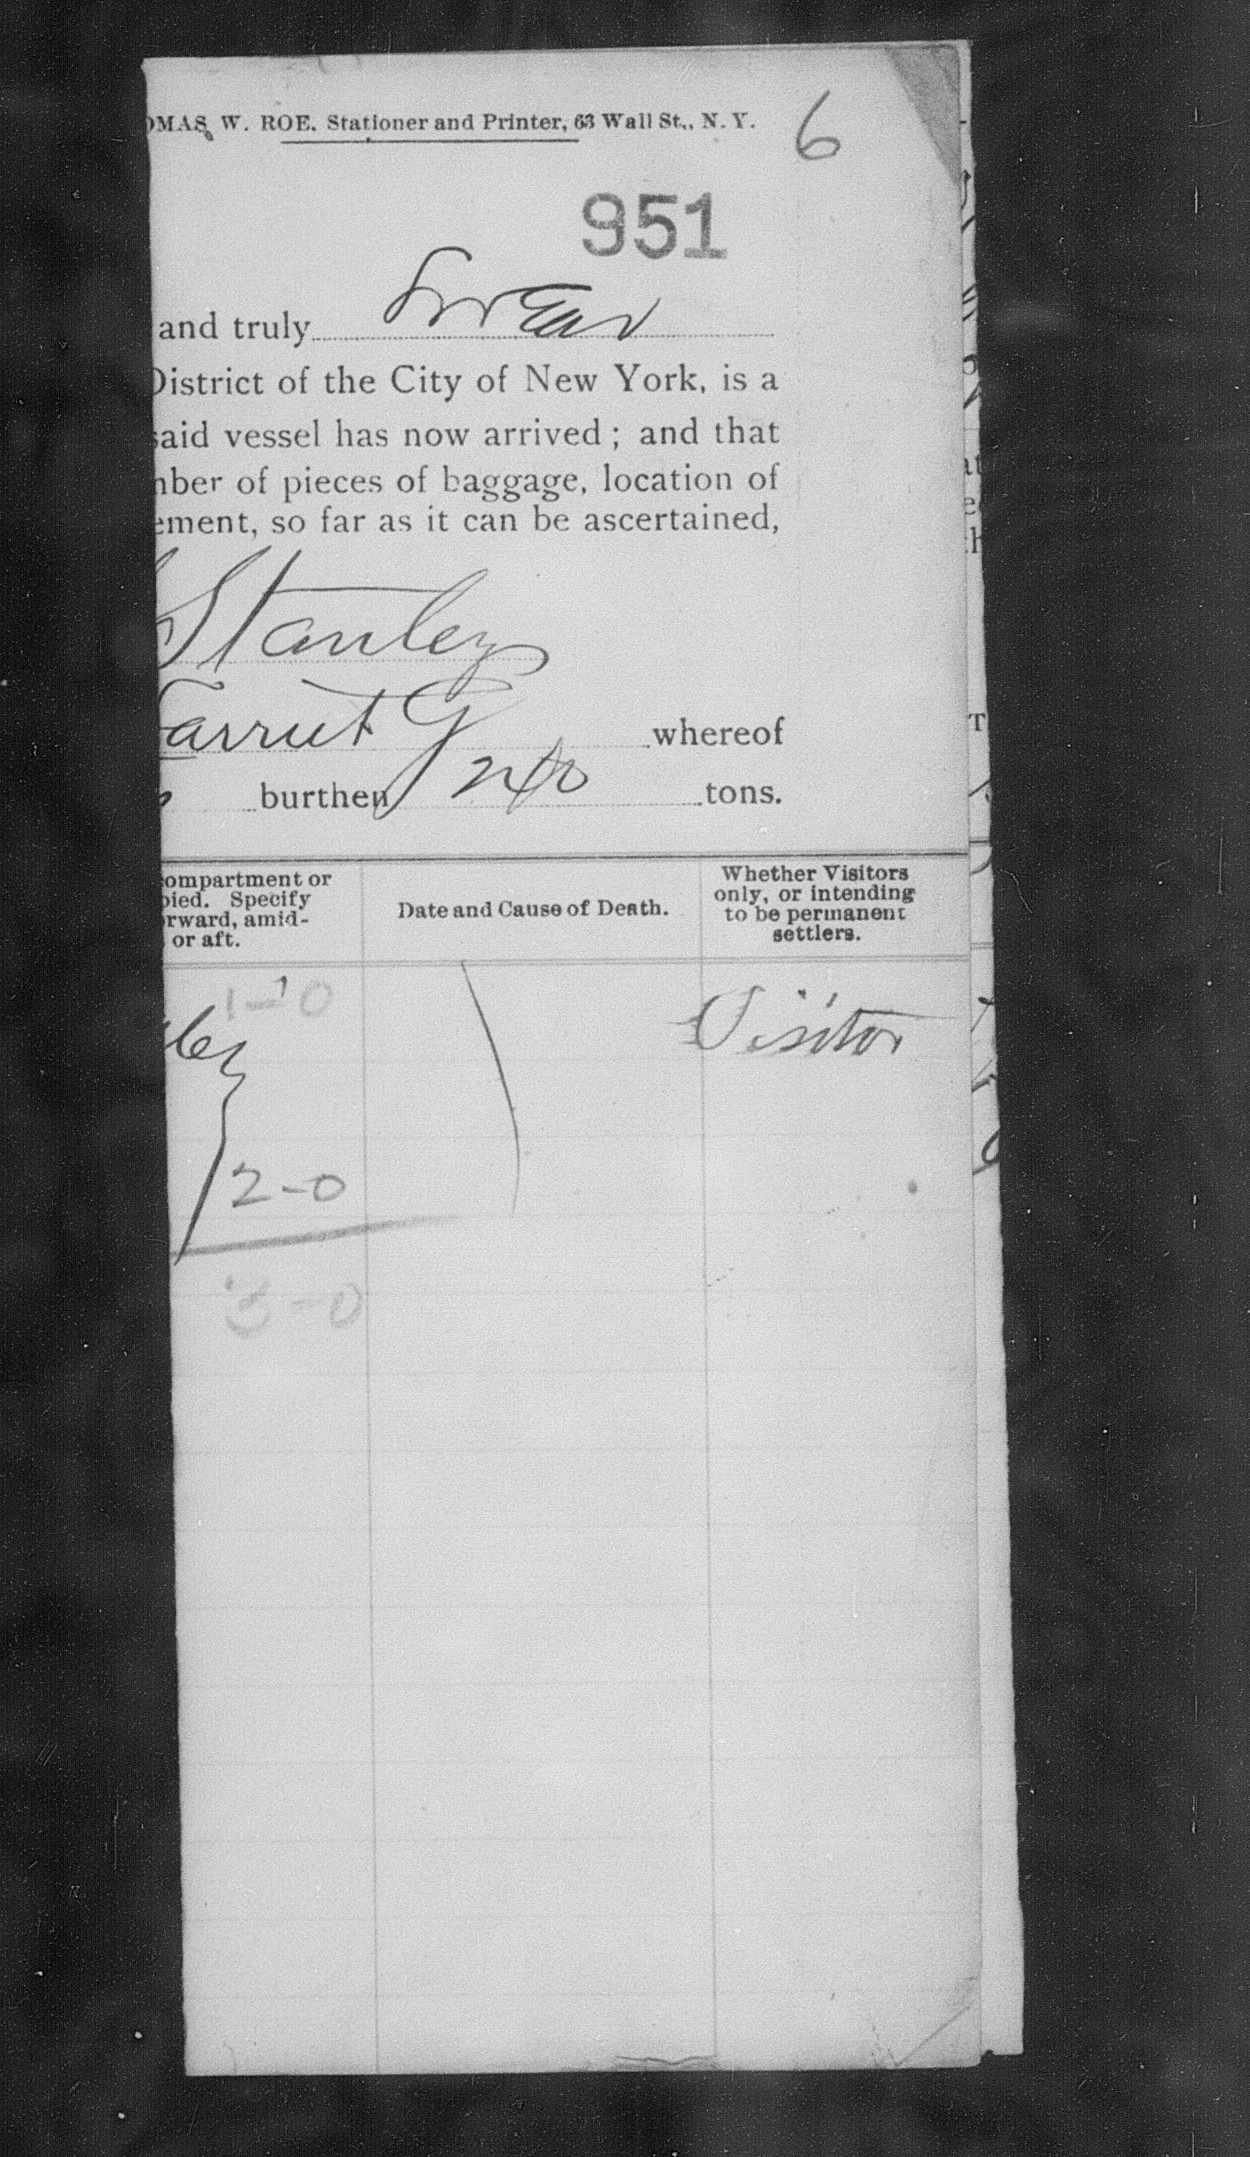 OMAS W. ROE. Stationer and Printer, 63 Wall St., N. Y. 6
951
and truly swear
District of the City of New York, is a
said vessel has now arrived; and that
nber of pieces of baggage, location of
ement, so far as it can be ascertained,
Stanley
arriet G whereof
burthen 240 tons.
ompartment or
pied. Specify
rward, amid-
or aft.
Date and Cause of Death.
Whether Visitors
only, or intending
to be permanent
settlers.
1-0
Visitor
2-0
3-0